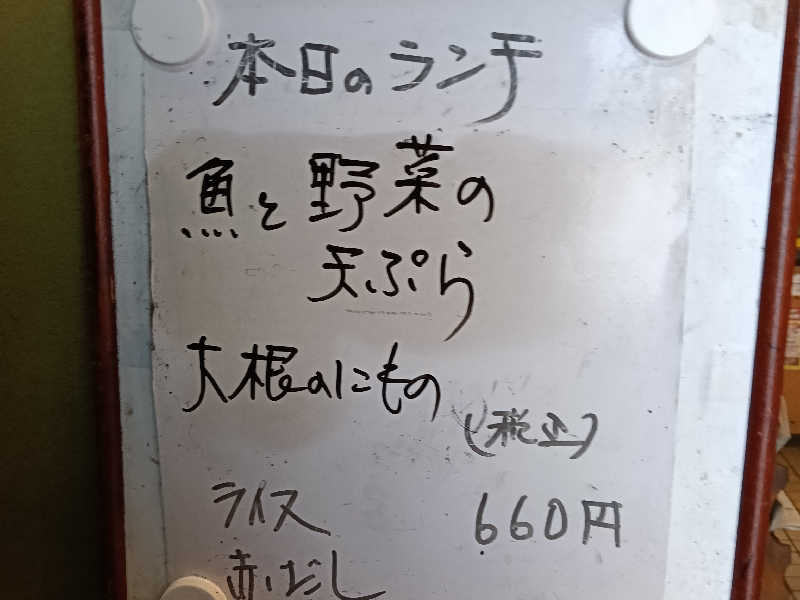 本日のランチ
魚と野菜の
天ぷら
大根のにもの
(税込)
ライス 660円
赤だし